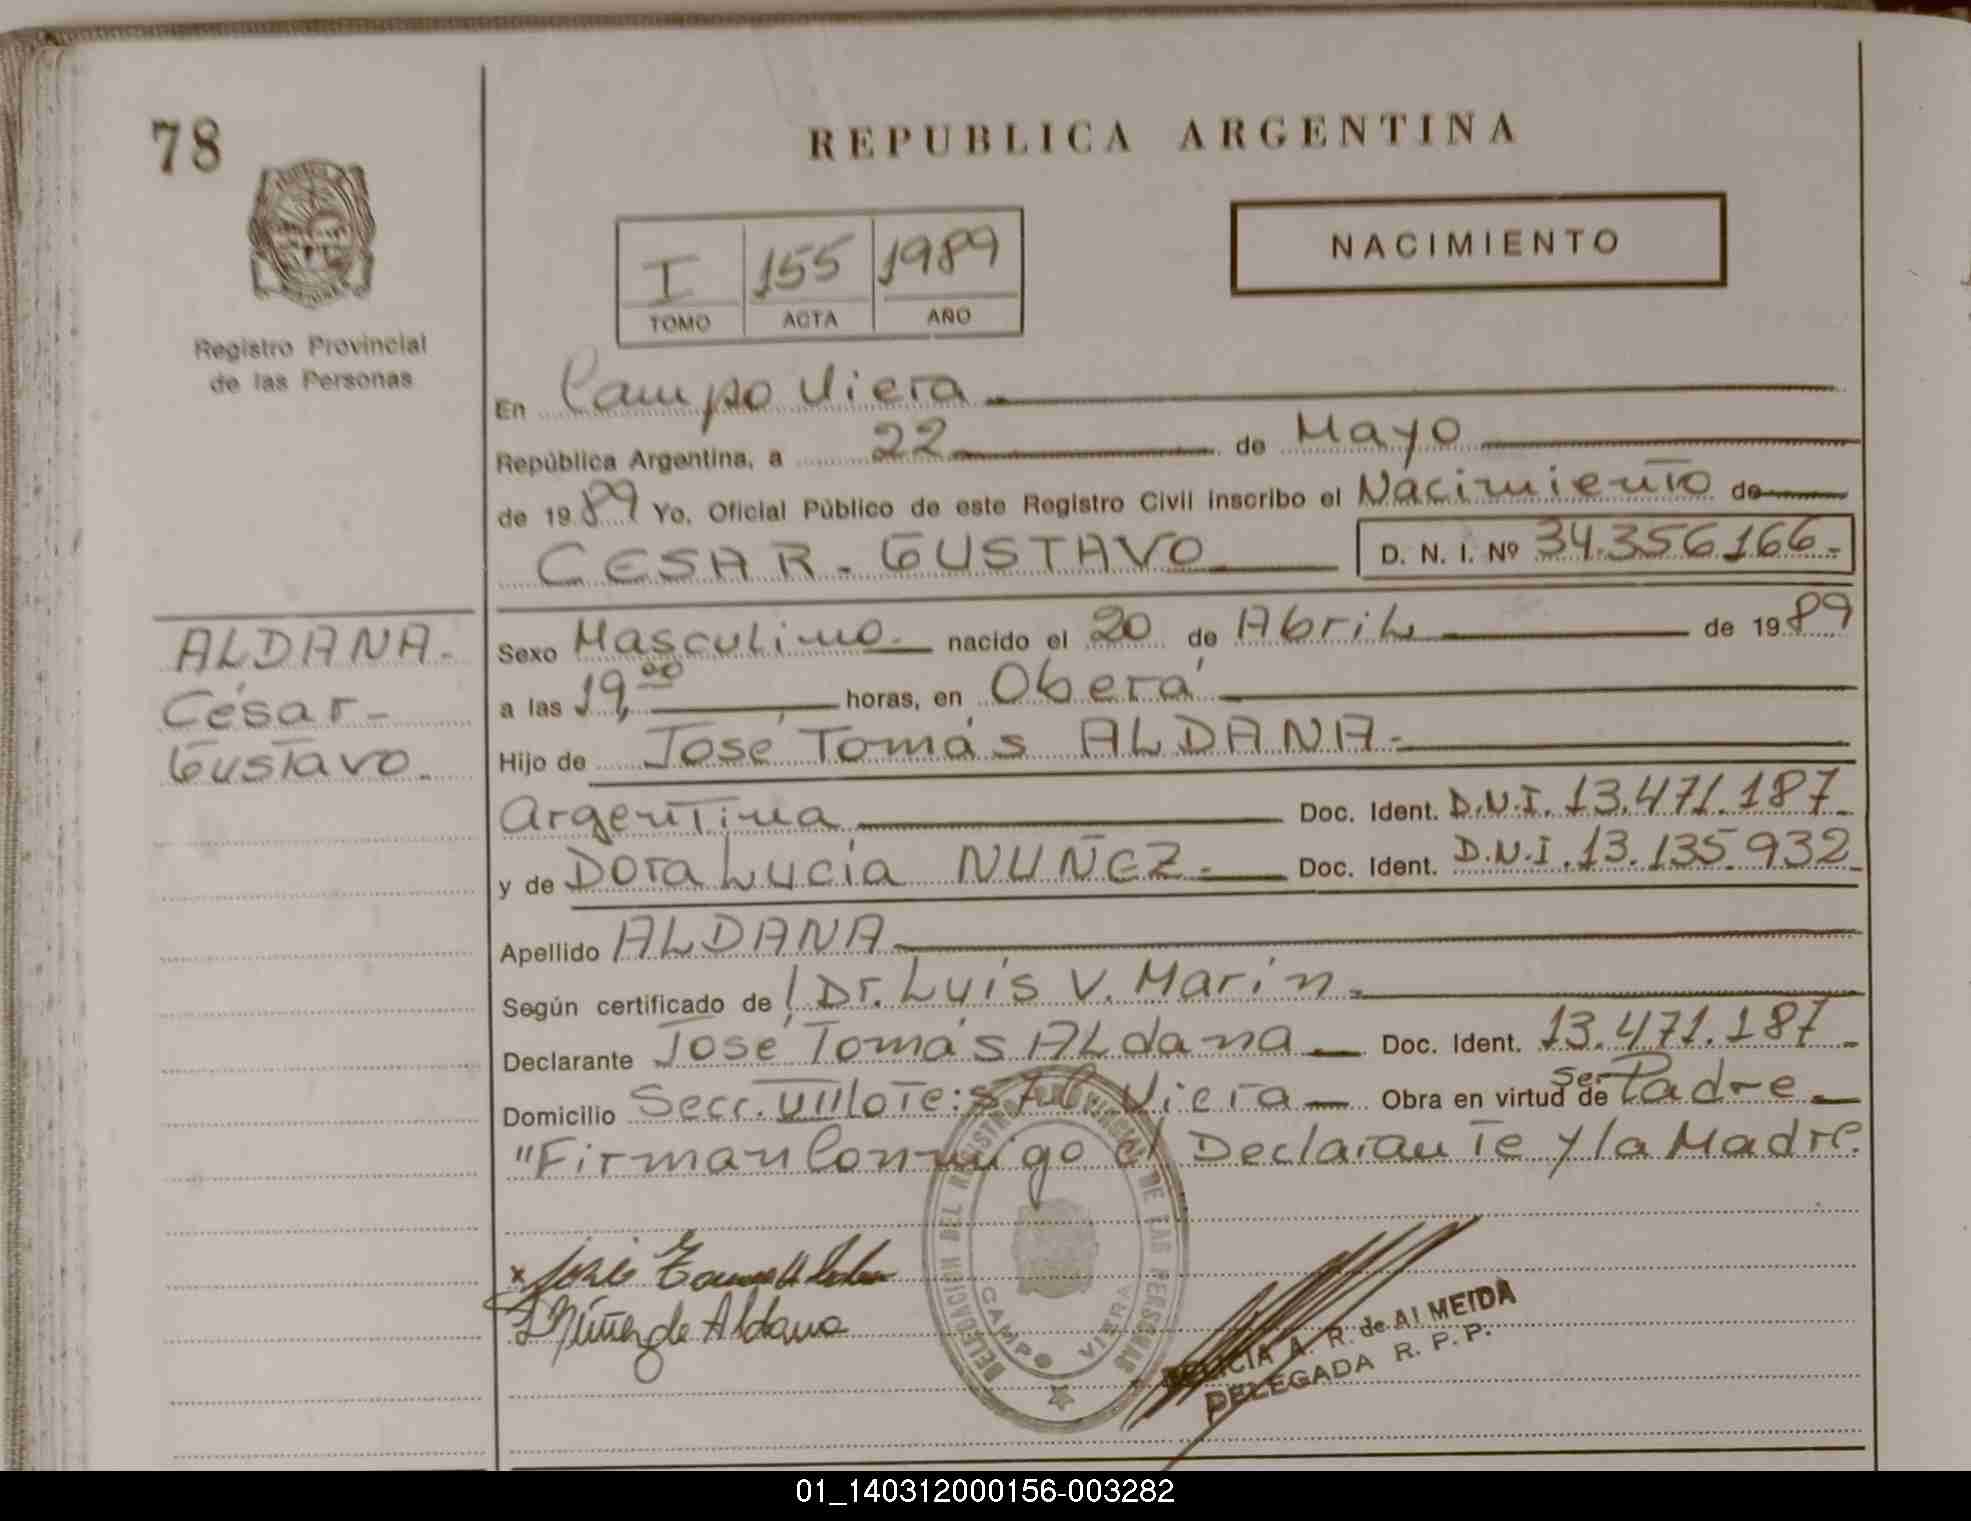 78
REPUBLICA ARGENTINA
NACIMIENTO
I 155 1989
TOMO ACTA AÑO
Registro Provincial
de las Personas
En Campo Viera
República Argentina, a 22 de Mayo
de 1989 Yo, Oficial Público de este Registro Civil inscribo el Nacimiento de
CESAR - GUSTAVO D. N. I. Nº 34.356.166-
ALDANA-
César-
Gustavo-
Sexo Masculino- nacido el 20 de Abril de 1989
a las 19,00 horas, en Oberá
Hijo de José Tomás ALDANA-
Argentina Doc. Ident. D.N.I. 13.471.187-
y de Dora Lucía NUÑEZ- Doc. Ident. D.N.I. 13.135.932-
Apellido ALDANA
Según certificado de Dr. Luis V. Marín-
Declarante José Tomás ALdana Doc. Ident. 13.471.187-
Domicilio Secc. VIII Viera Obra en virtud de Ser Padre-
"Firman Conmigo el Declarante y la Madre.
José Tomas Aldana
Núñez de Aldana
DELEGACION DEL REGISTRO PROVINCIAL DE LAS PERSONAS
CAMPO VIERA
FELICIA A. R. de ALMEIDA
DELEGADA R. P. P.
01_140312000156-003282